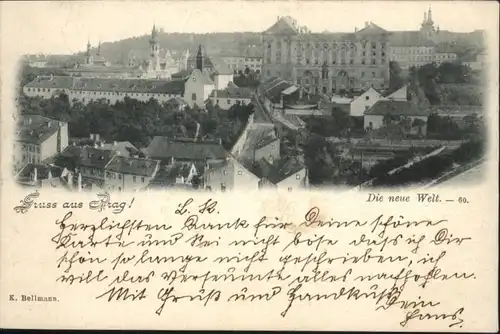 Gruss aus Prag!
Die neue Welt. — 60.
L. K.
Herzlichsten Dank für Deine schöne
Karte und sei nicht böse dass ich Dir
schön so lange nicht geschrieben, ich
will das Versäumte alles nachholen.
Mit Gruß und Handkuß Dein
Hans.
K. Bellmann.